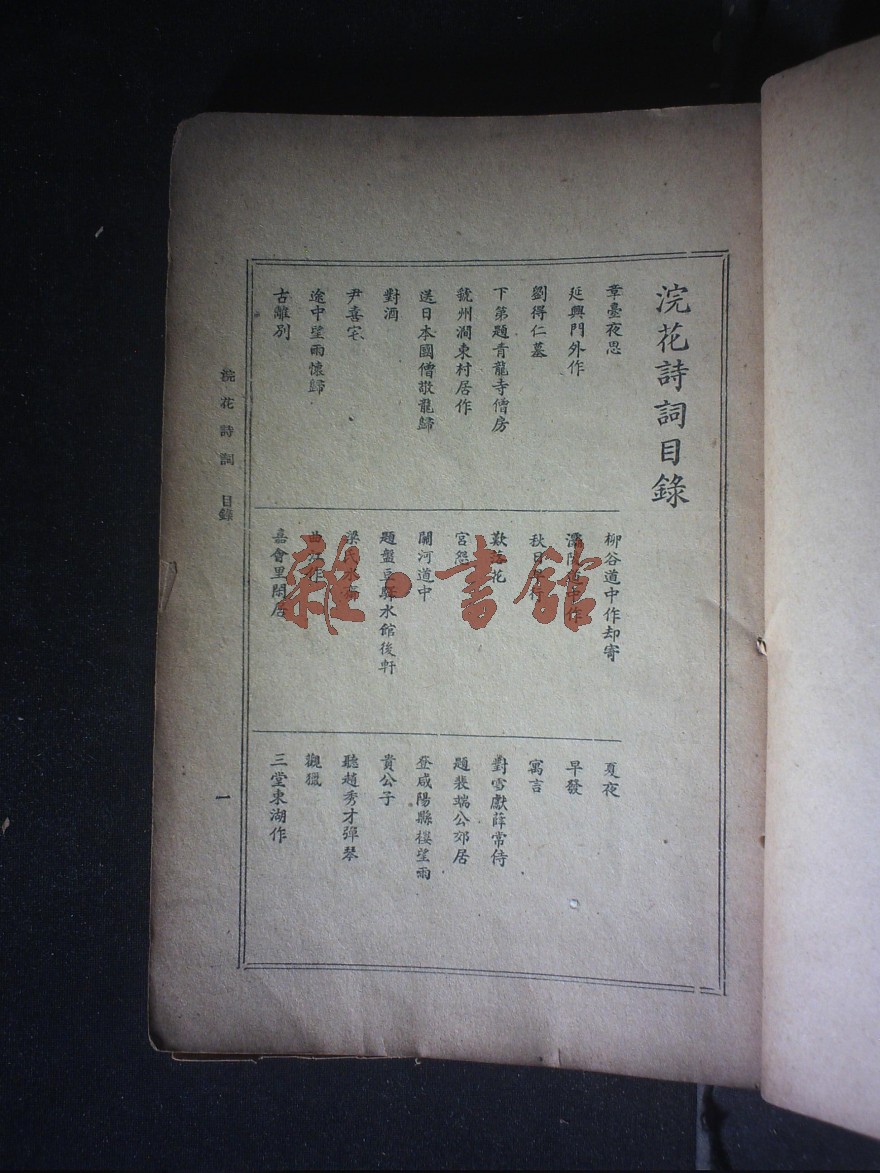 浣花詩詞目錄
章臺夜思
延興門外作
劉得仁墓
下第題青龍寺僧房
虢州澗東村居作
送日本國僧敬龍歸
對酒
尹喜宅
途中望雨懷歸
古離別
柳谷道中作却寄
灞陵道中作
秋日早行
歎落花
宮怨
關河道中
題盤豆驛水館後軒
梁氏水齋
曲江作
嘉會里閒居
夏夜
早發
寓言
對雪獻薛常侍
題裴端公郊居
登咸陽縣樓望雨
貴公子
聽趙秀才彈琴
觀獵
三堂東湖作
浣花詩詞 目錄
一
雜·書館